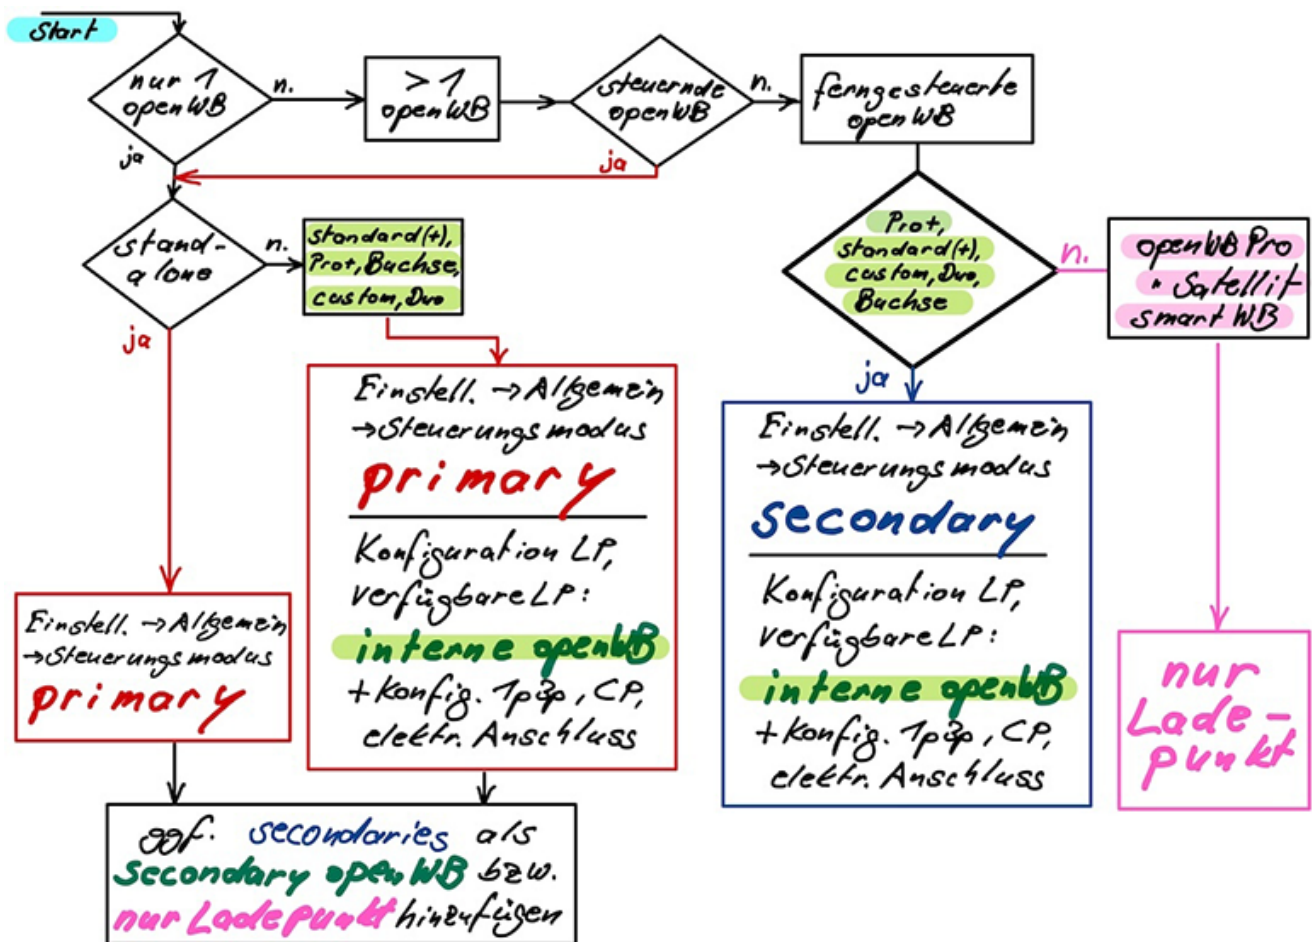 Start
nur 1
openWB
n.
ja
> 1
openWB
steuernde
openWB
n.
ja
ferngesteuerte
openWB
stand-
alone
n.
ja
standard(+),
Pro+, Buchse,
custom, Duo
Pro+,
standard(+),
custom, Duo,
Buchse
n.
ja
openWB Pro
" Satellit
smartWB
Einstell. → Allgemein
→ Steuerungsmodus
primary
Konfiguration LP,
verfügbare LP:
interne openWB
+ Konfig. 1p3p, CP,
elektr. Anschluss
Einstell. → Allgemein
→ Steuerungsmodus
secondary
Konfiguration LP,
verfügbare LP:
interne openWB
+ Konfig. 1p3p, CP,
elektr. Anschluss
Einstell. → Allgemein
→ Steuerungsmodus
primary
nur
Lade-
punkt
ggf. secondaries als
secondary openWB bzw.
nur Ladepunkt hinzufügen